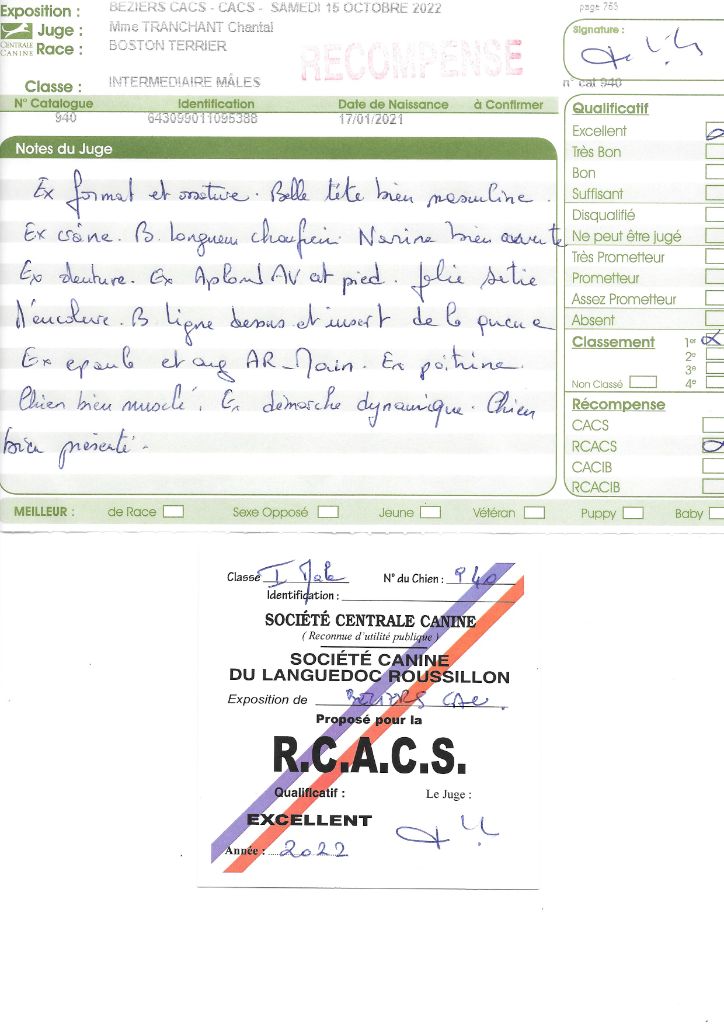 Exposition : BEZIERS CACS - CACS - SAMEDI 15 OCTOBRE 2022 page 763
Juge : Mme TRANCHANT Chantal
CENTRALE CANINE Race : BOSTON TERRIER
RECOMPENSE
Signature :
Classe : INTERMEDIAIRE MÂLES n° cat 940
N° Catalogue Identification Date de Naissance à Confirmer
940 643099011095388 17/01/2021
Notes du Juge
Ex format et ossature. Belle tête bien masculine.
Ex crâne. B. longueur chanfrein. Narine bien ouverte
Ex denture. Ex Aplomb AV et pied. Jolie sortie
d'encolure. B ligne dessus et insert de la queue
Ex epaule et ang AR_Main. Ex poitrine.
Chien bien musclé. Ex démarche dynamique. Chien
bien présenté.
Qualificatif
Excellent
Très Bon
Bon
Suffisant
Disqualifié
Ne peut être jugé
Très Prometteur
Prometteur
Assez Prometteur
Absent
Classement 1er
2e
3e
Non Classé 4e
Récompense
CACS
RCACS
CACIB
RCACIB
MEILLEUR : de Race Sexe Opposé Jeune Vétéran Puppy Baby
Classe I Male N° du Chien : 940
Identification :
SOCIÉTÉ CENTRALE CANINE
( Reconnue d'utilité publique )
SOCIÉTÉ CANINE
DU LANGUEDOC ROUSSILLON
Exposition de BEZIERS CAC.
Proposé pour la
R.C.A.C.S.
Qualificatif : Le Juge :
EXCELLENT
Année : 2022